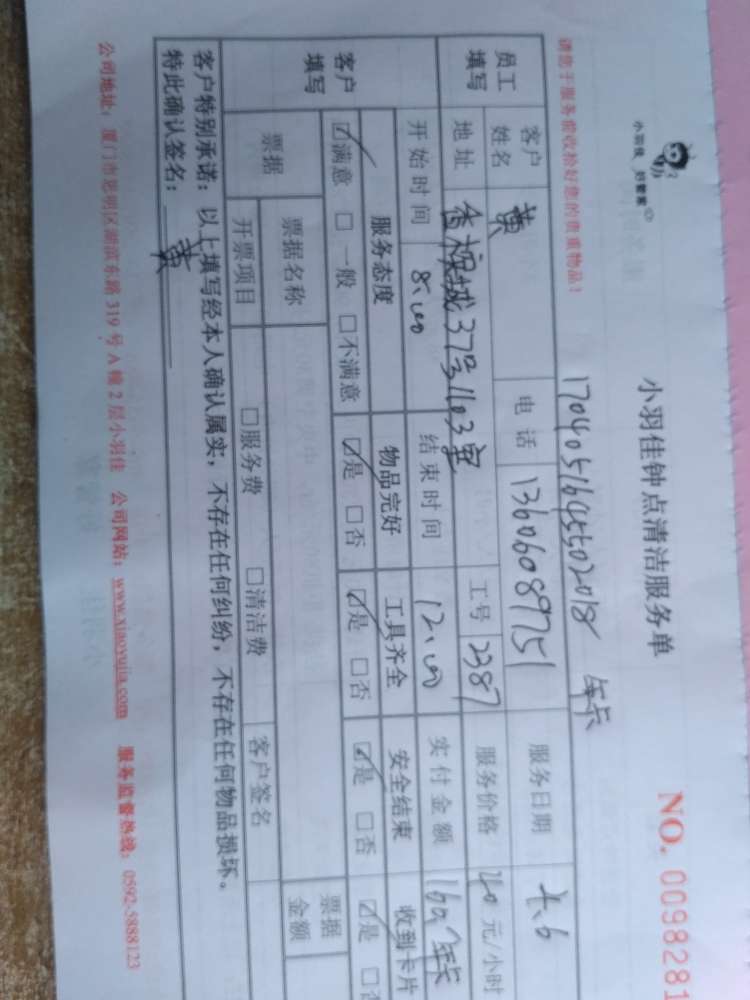 小羽佳 好管家
小羽佳钟点清洁服务单
NO. 0098281
请您于服务前收拾好您的贵重物品！
1704051645502018 年卡
员工填写 客户姓名 黄 电话 13606089751 服务日期
地址 37号1103室 工号 2387 服务价格 40 元/小时
开始时间 8:00 结束时间 12:00 实付金额 160 年卡
客户填写 服务态度 物品完好 工具齐全 安全结束 收到卡片
☑满意 □一般 □不满意 ☑是 □否 ☑是 □否 ☑是 □否 ☑是 □否
票据 票据名称 票据金额
开票项目 □服务费 □清洁费 客户签名
客户特别承诺：以上填写经本人确认属实，不存在任何纠纷，不存在任何物品损坏。
特此确认签名： 黄
公司地址：厦门市思明区湖滨东路 319 号 A 幢 2 层小羽佳 公司网站：www.xiaoyujia.com 服务监督热线：0592-5888123